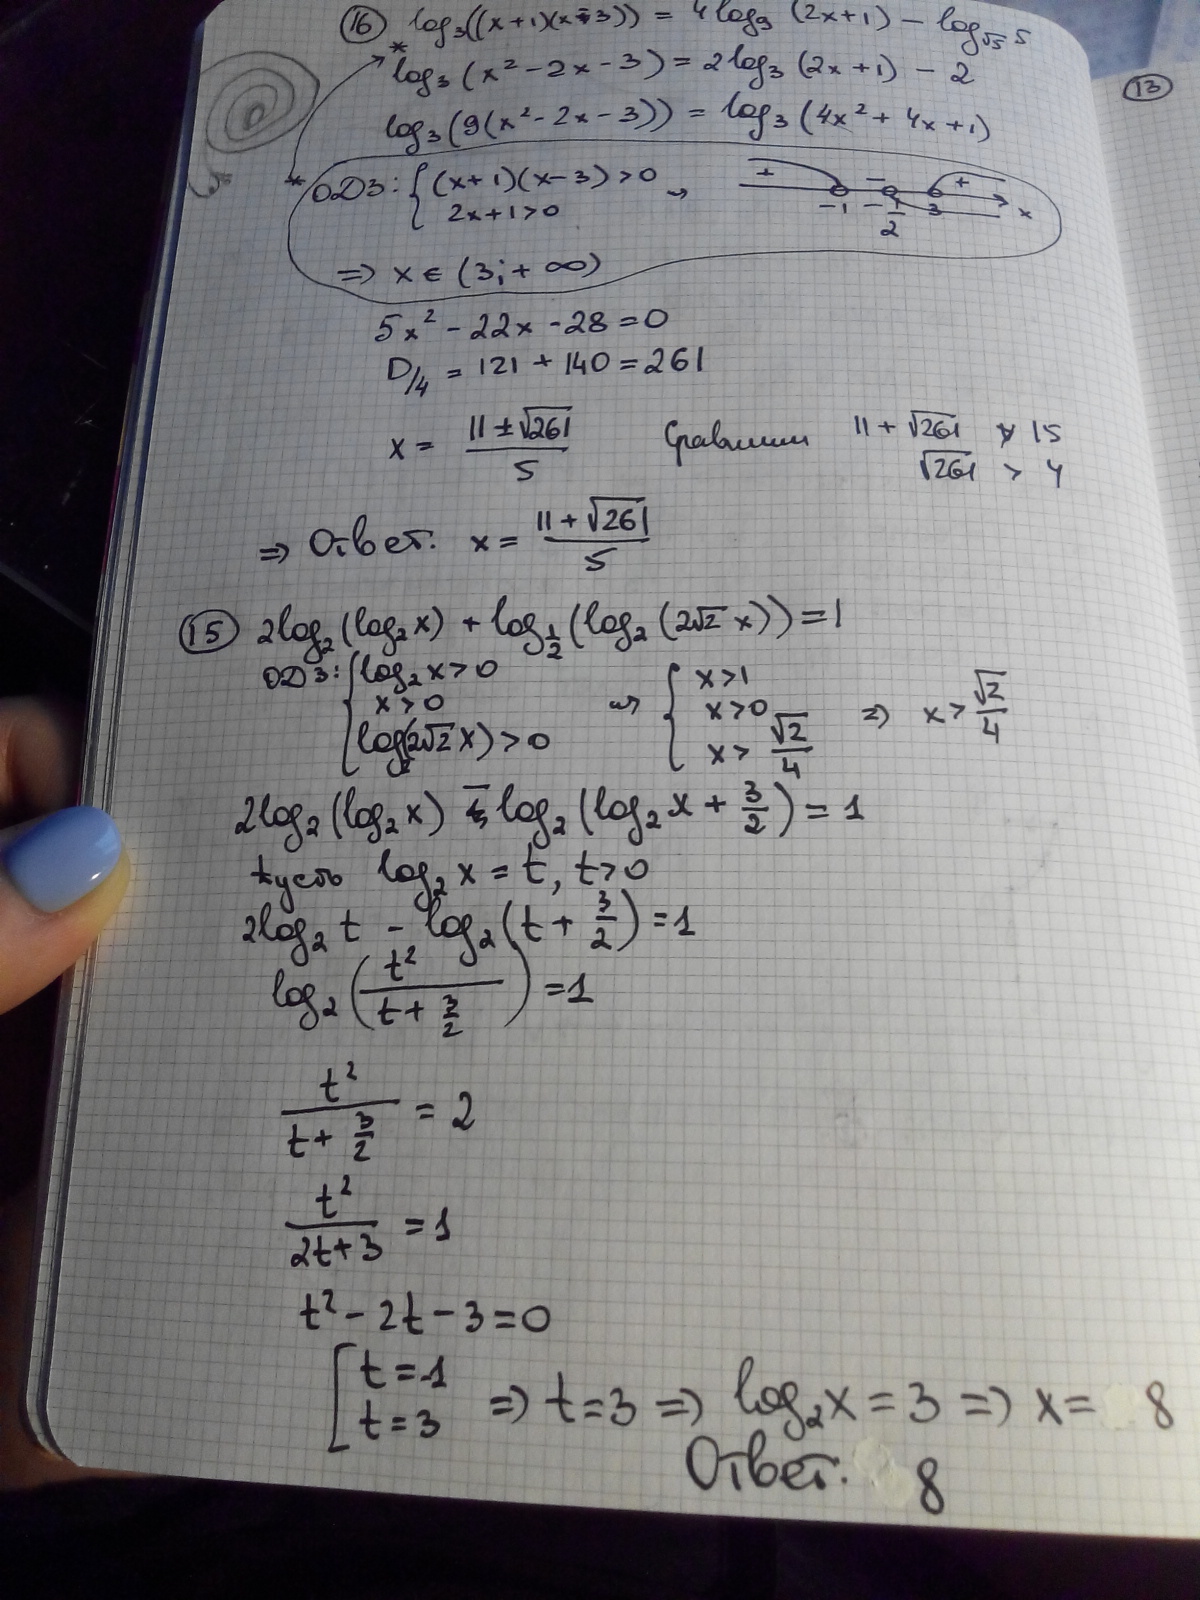 (16) log₃((x+1)(x-3)) = 4log₉(2x+1) - log_√5 5
* log₃(x² - 2x - 3) = 2log₃(2x+1) - 2
log₃(9(x² - 2x - 3)) = log₃(4x² + 4x + 1)
* ОДЗ: { (x+1)(x-3) > 0
2x+1 > 0
+ - + -1 -1/2 3 x
=> x ∈ (3; + ∞)
5x² - 22x - 28 = 0
D/4 = 121 + 140 = 261
x = (11 ± √261)/5 Сравним 11 + √261 > 15
√261 > 4
=> Ответ: x = (11 + √261)/5
(15) 2log₂(log₂x) + log_1/2(log₂(2√2 x)) = 1
ОДЗ: { log₂x > 0
x > 0
log₂(2√2 x) > 0
{ x > 1
x > 0
x > √2/4
=> x > √2/4
2log₂(log₂x) - log₂(log₂x + 3/2) = 1
пусть log₂x = t, t > 0
2log₂t - log₂(t + 3/2) = 1
log₂(t²/(t + 3/2)) = 1
t²/(t + 3/2) = 2
t²/(2t+3) = 1
t² - 2t - 3 = 0
[ t = -1
t = 3
=> t = 3 => log₂x = 3 => x = 8
Ответ: 8
(13)